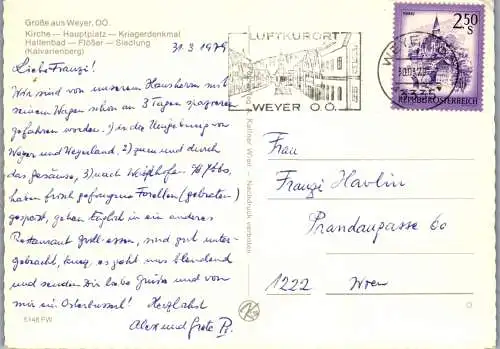 Grüße aus Weyer, OÖ.
Kirche — Hauptplatz — Kriegerdenkmal
Hallenbad — Flößer — Siedlung
(Kalvarienberg)
31.3 1979
Liebe Franzi!
Wir sind von unserem Hausherrn mit
seinem Wagen schon an 3 Tagen spazieren
gefahren worden. 1) in die Umgebung von
Weyer und Weyerland, 2) zum und durch
das Gesäuse, 3) nach Waidhofen a/Ybbs,
haben frisch gefangene Forellen (gebraten)
gespeist, gehen täglich in ein anderes
Restaurant Groß-essen, sind gut unter-
gebracht, kurz, es geht uns blendend
und senden Dir liebe Grüße und von
mir ein Osterbussel! Herzlichst
Alex und Grete
5746 FW
LUFTKURORT
WEYER O.Ö.
WEYER
3335
2.50
S
MURAU
REPUBLIK ÖSTERREICH
Frau
Franzi Havlin
Prandaugasse 60
1222 Wien